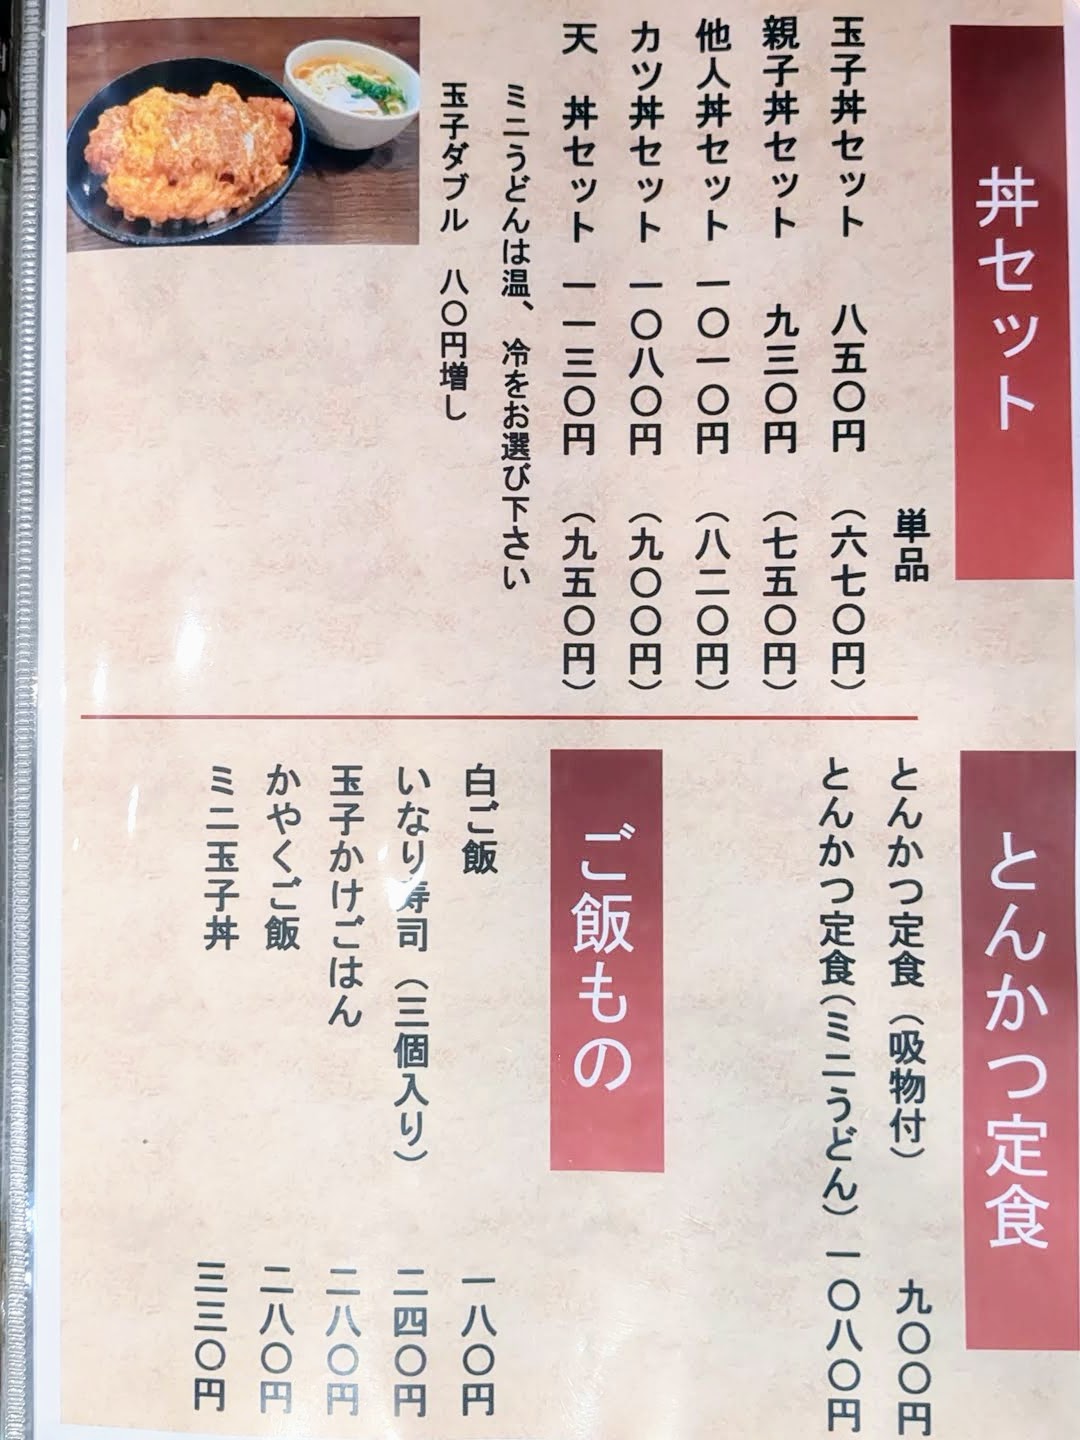 丼セット
単品
玉子丼セット 八五〇円 （六七〇円）
親子丼セット 九三〇円 （七五〇円）
他人丼セット 一〇一〇円 （八二〇円）
カツ丼セット 一〇八〇円 （九〇〇円）
天 丼セット 一一三〇円 （九五〇円）
ミニうどんは温、冷をお選び下さい
玉子ダブル 八〇円増し
とんかつ定食
とんかつ定食（吸物付） 九〇〇円
とんかつ定食（ミニうどん） 一〇八〇円
ご飯もの
白ご飯 一八〇円
いなり寿司（三個入り） 二四〇円
玉子かけごはん 二八〇円
かやくご飯 二八〇円
ミニ玉子丼 三三〇円